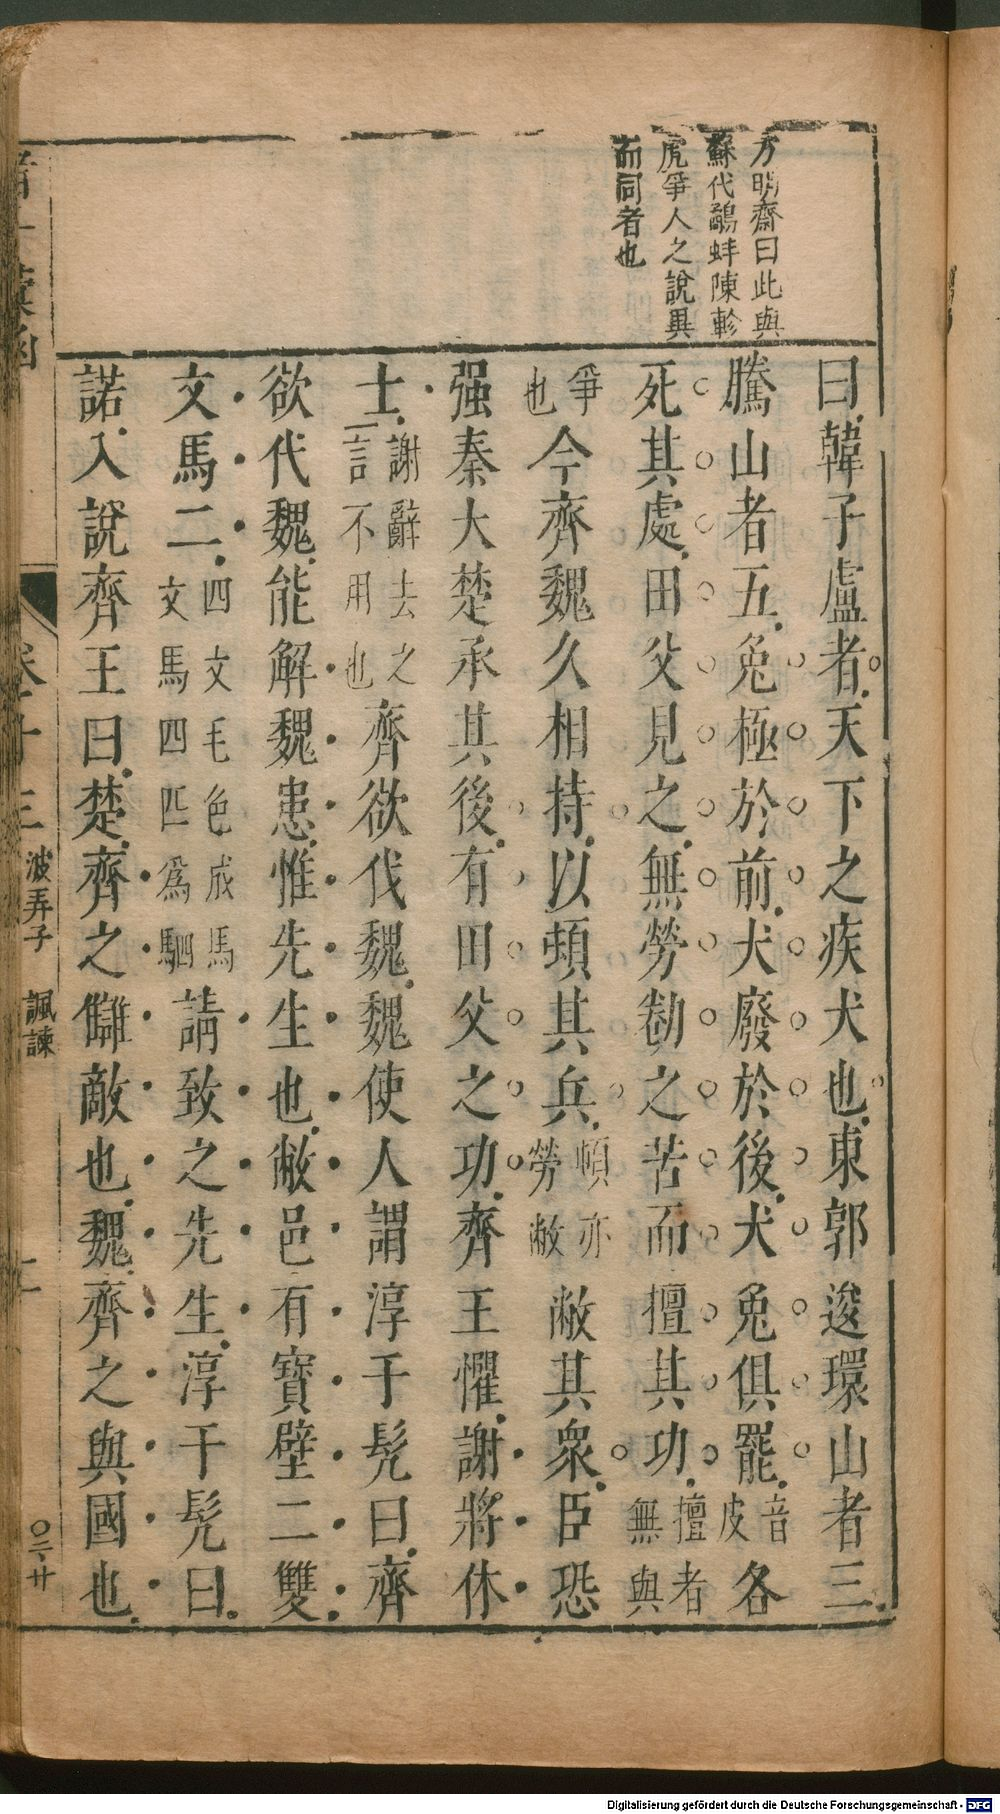 方明齋曰此與
蘇代鷸蚌陳軫
虎爭人之說異
而同者也
曰韓子盧者天下之疾犬也東郭逡環山者三
騰山者五兔極於前犬廢於後犬兔俱罷音皮各
死其處田父見之無勞勌之苦而擅其功擅者無與
爭也今齊魏久相持以頓其兵頓亦勞敝敝其衆臣恐
强秦大楚承其後有田父之功齊王懼謝將休
士謝辭去之一言不用也齊欲伐魏魏使人謂淳于髡曰齊
欲代魏能解魏患惟先生也敝邑有寶璧二雙
文馬二四文毛色成馬文馬四匹爲駟請致之先生淳于髡曰
諾入說齊王曰楚齊之讎敵也魏齊之與國也
波弄子 諷諫
Digitalisierung gefördert durch die Deutsche Forschungsgemeinschaft - DFG